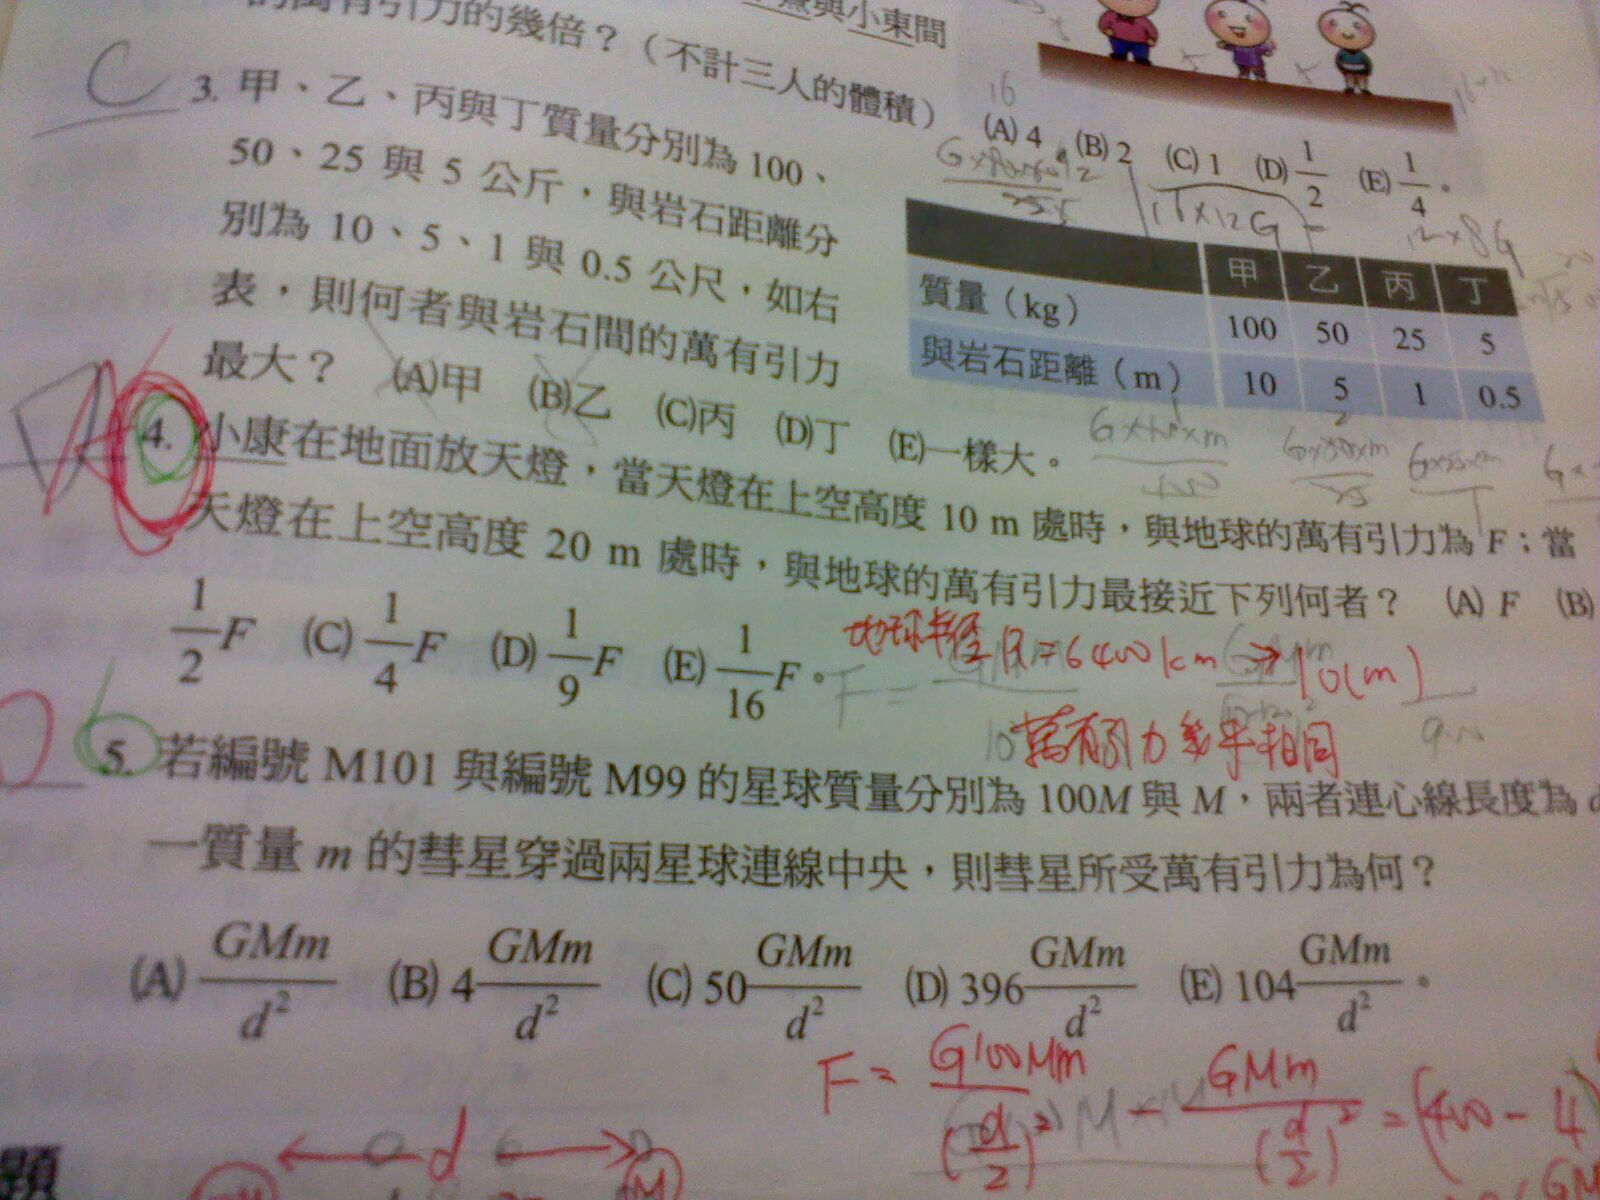 的萬有引力的幾倍？（不計三人的體積）
與小東間
(A) 4 (B) 2 (C) 1 (D) 1/2 (E) 1/4 。
C
3. 甲、乙、丙與丁質量分別為 100、
50、25 與 5 公斤，與岩石距離分
別為 10、5、1 與 0.5 公尺，如右
表，則何者與岩石間的萬有引力
最大？ (A)甲 (B)乙 (C)丙 (D)丁 (E)一樣大。
16
16×12G
12×8G
甲 乙 丙 丁
質量（kg） 100 50 25 5
與岩石距離（m） 10 5 1 0.5
4. 小康在地面放天燈，當天燈在上空高度 10 m 處時，與地球的萬有引力為 F；當
天燈在上空高度 20 m 處時，與地球的萬有引力最接近下列何者？ (A) F (B)
1/2 F (C) 1/4 F (D) 1/9 F (E) 1/16 F。
地球半徑 R=6400km → 10(m)
F =
萬有引力幾乎相同
5. 若編號 M101 與編號 M99 的星球質量分別為 100M 與 M，兩者連心線長度為 d
一質量 m 的彗星穿過兩星球連線中央，則彗星所受萬有引力為何？
(A) GMm/d² (B) 4 GMm/d² (C) 50 GMm/d² (D) 396 GMm/d² (E) 104 GMm/d² 。
F = G100Mm/(d/2)² - GMm/(d/2)² = (400 - 4)
d
M
GM
題